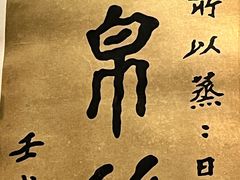 所以蒸〻日
帛
壬